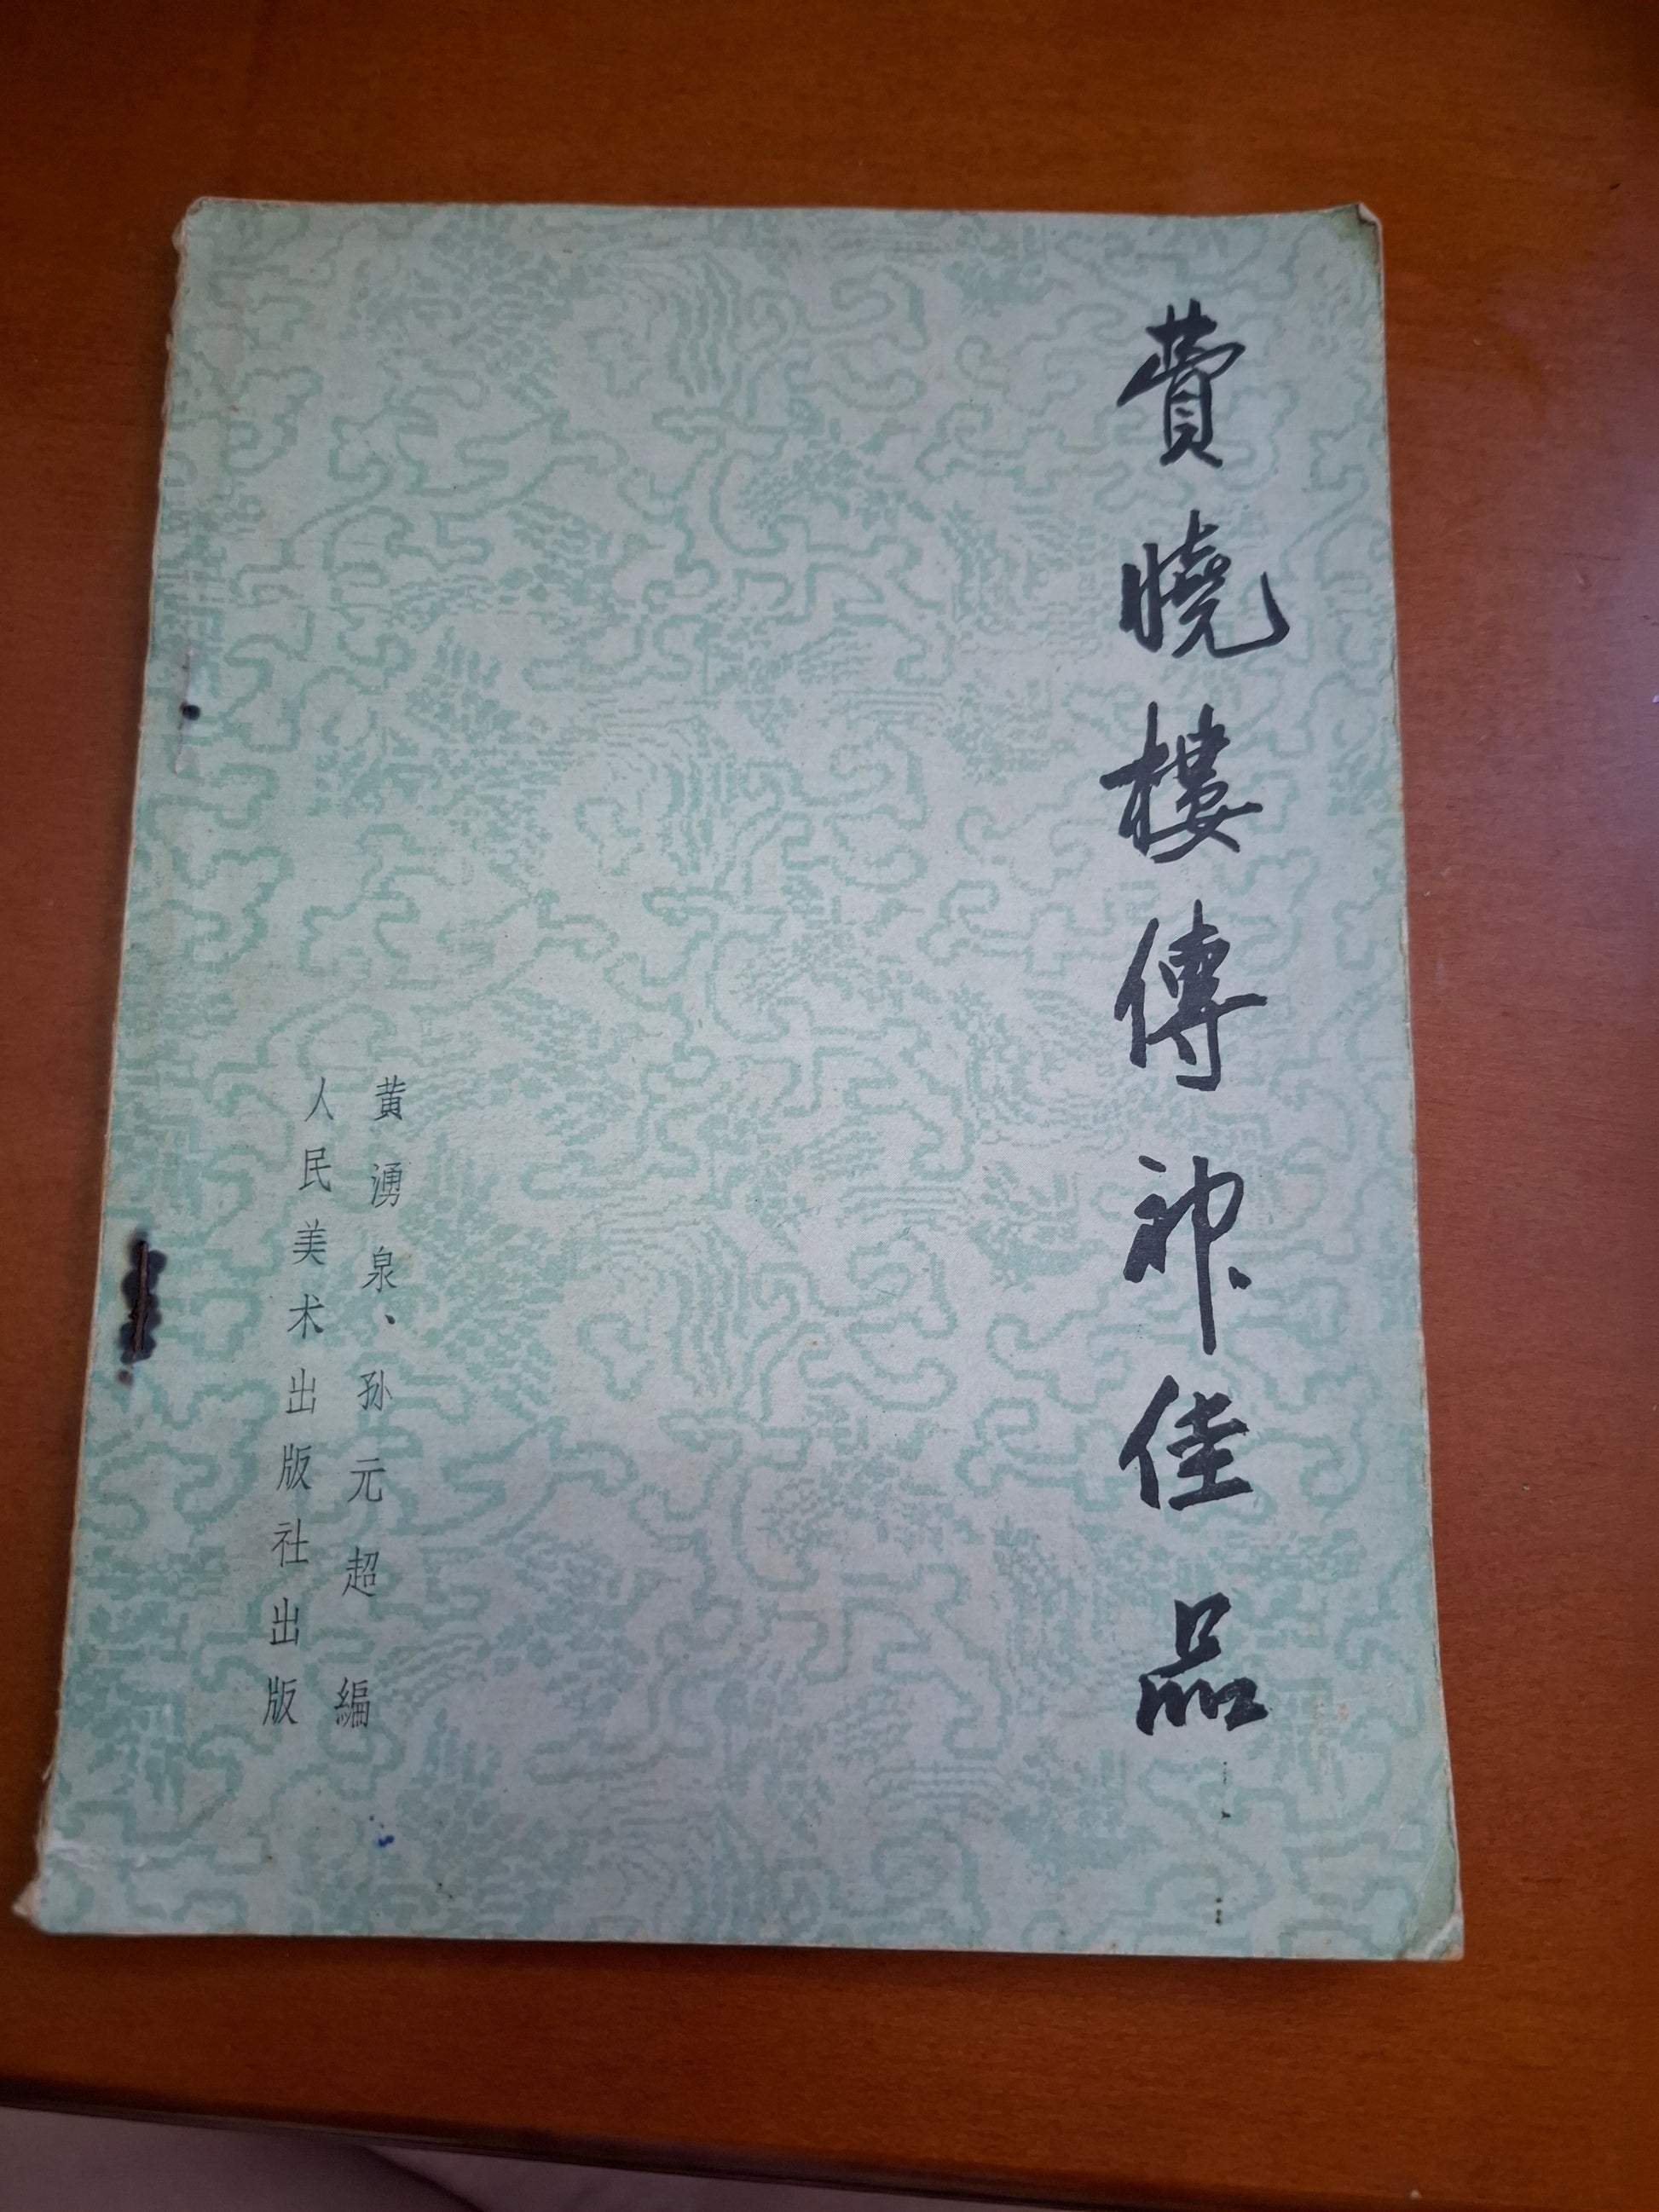 費曉樓傳神佳品
黄湧泉、孙元超 編
人民美术出版社出版